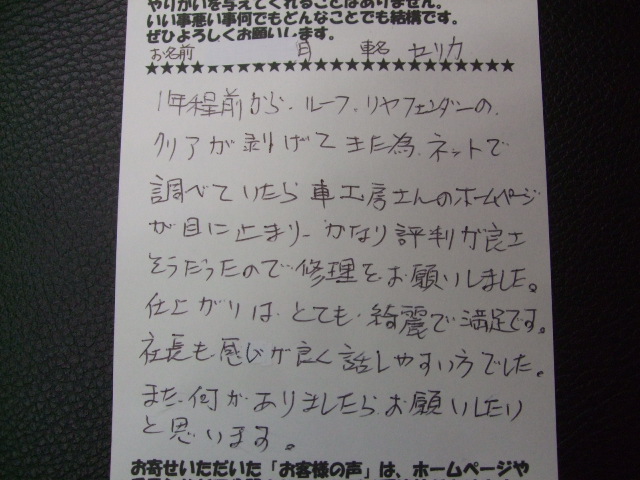 やりがいを与えてくれることはありません。
いい事悪い事何でもどんなことでも結構です。
ぜひよろしくお願いします。
お名前 月 車名 セリカ
★★★★★★★★★★★★★★★★★★★★★★★★
1年程前から、ルーフ、リヤフェンダーの、
クリアが剥げてきた為、ネットで
調べていたら車工房さんのホームページ
が目に止まり、かなり評判が良さ
そうだったので修理をお願いしました。
仕上がりは、とても、綺麗で満足です。
社長も感じが良く話しやすい方でした。
また何かありましたらお願いしたい
と思います。
お寄せいただいた「お客様の声」は、ホームページや